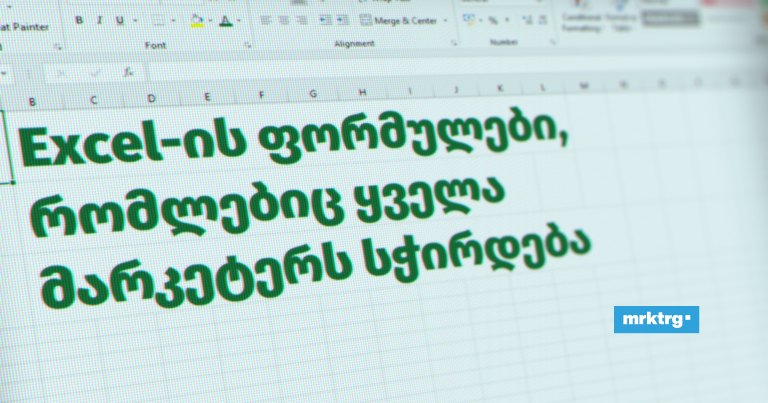 at Painter
B I U
Merge & Center
Font
Alignment
Number
B C D E F G H I J K L M
Excel-ის ფორმულები,
რომლებიც ყველა
მარკეტერს სჭირდება
mrktrg